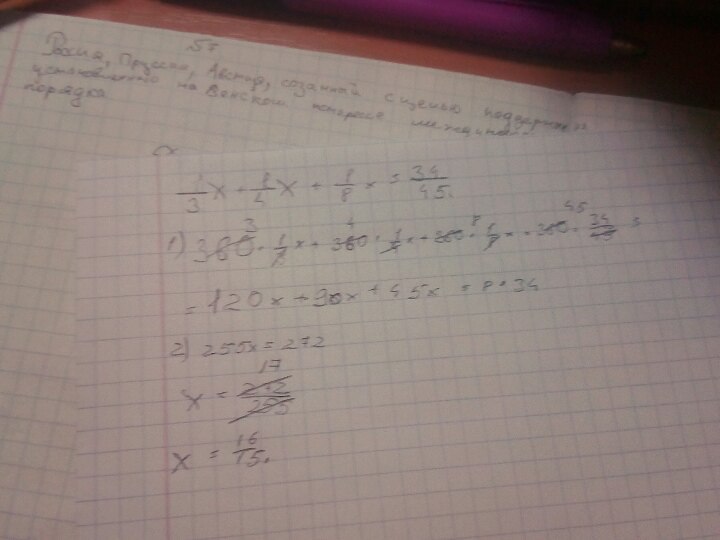 57
Россия, Пруссия, Австрия, созданный с целью поддержания
установленного на Венском конгрессе международ
порядка
1/3 x + 1/4 x + 1/8 x = 34/45.
1) 360 3 · 1/3 x + 360 4 · 1/4 x + 360 8 · 1/8 x = 360 45 · 34/45 =
= 120x + 90x + 45x = 8 · 34
2) 255x = 272
x = 272/255 17
x = 16/15.